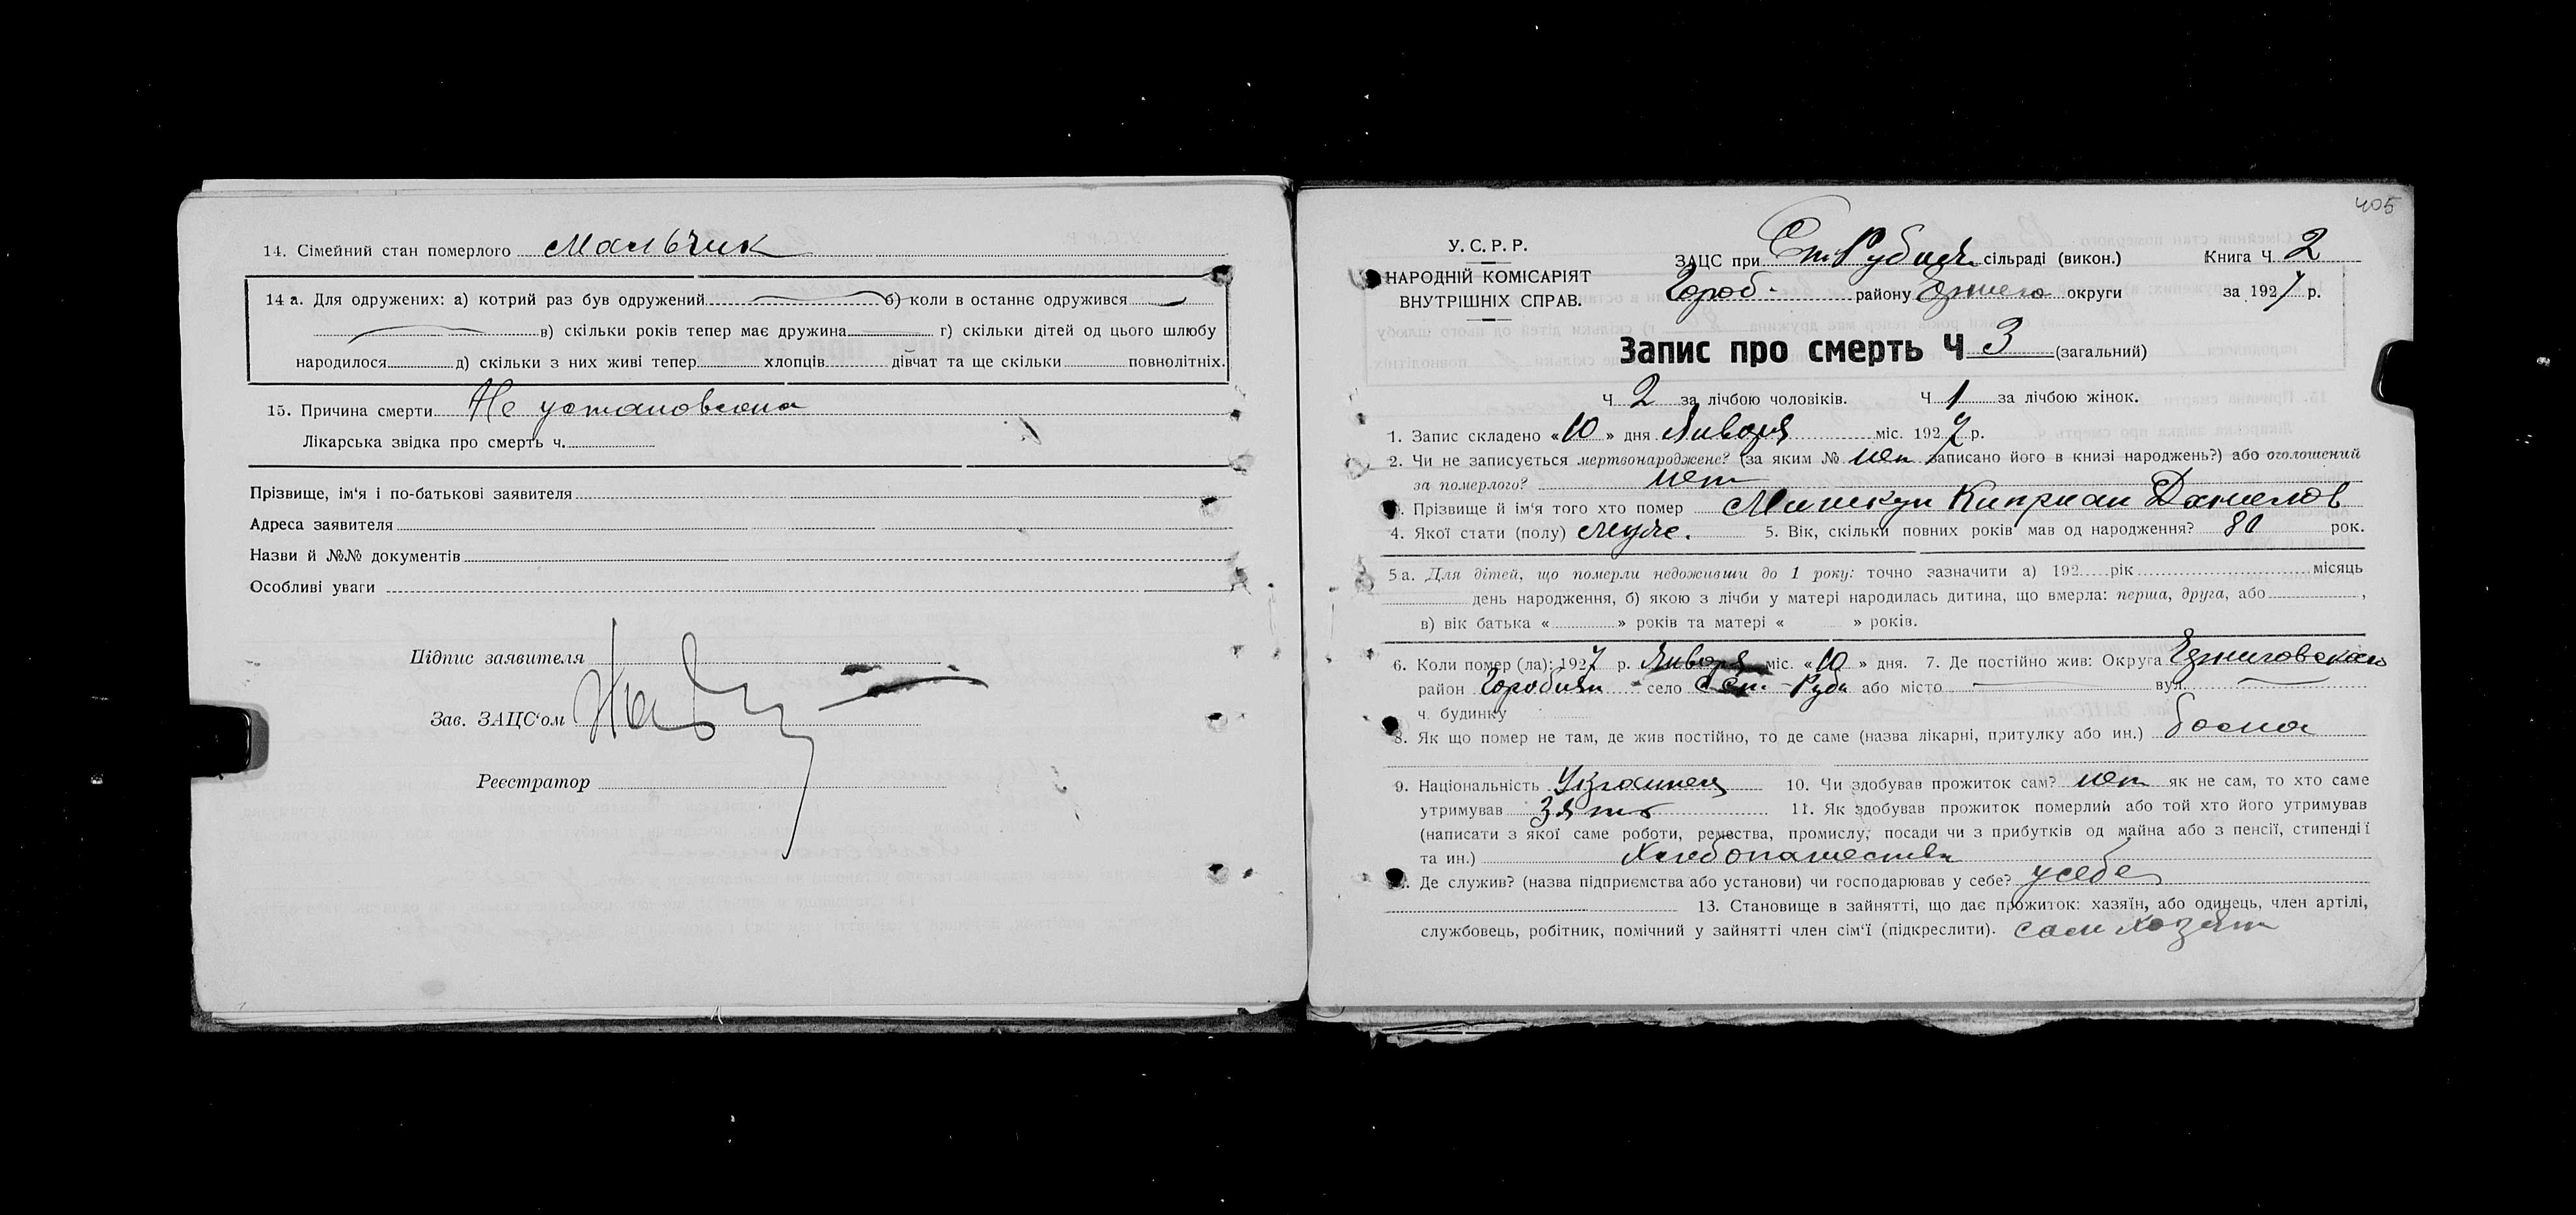 14. Сімейний стан померлого Мальчик
14 а. Для одружених: а) котрий раз був одружений б) коли в останнє одружився
в) скільки років тепер має дружина г) скільки дітей од цього шлюбу
народилося д) скільки з них живі тепер хлопців дівчат та ще скільки повнолітніх.
15. Причина смерти Не установлена
Лікарська звідка про смерть ч.
Прізвище, ім'я і по-батькові заявителя
Адреса заявителя
Назви й №№ документів
Особливі уваги
Підпис заявителя
Зав. ЗАЦС'ом
Реєстратор
405
У. С. Р. Р.
НАРОДНІЙ КОМІСАРІЯТ
ВНУТРІШНІХ СПРАВ.
ЗАЦС при сільраді (викон.) Книга Ч 2
Город. району округи за 1927 р.
Запис про смерть Ч 3 (загальний)
Ч 2 за лічбою чоловіків. Ч 1 за лічбою жінок.
1. Запис складено «10» дня Января міс. 1927 р.
2. Чи не записується мертвонароджене? (за яким № нет записано його в книзі народжень?) або оголошений
за померлого? нет
3. Прізвище й ім'я того хто помер Киприан Данилов
4. Якої стати (полу) муже. 5. Вік, скільки повних років мав од народження? 80 рок.
5 а. Для дітей, що померли недоживши до 1 року: точно зазначити а) 192 рік місяць
день народження, б) якою з лічби у матері народилась дитина, що вмерла: перша, друга, або ,
в) вік батька « » років та матері « » років.
6. Коли помер (ла): 1927 р. Января міс. «10» дня. 7. Де постійно жив: Округа
район село Руд. або місто вул.
ч. будинку
8. Як що помер не там, де жив постійно, то де саме (назва лікарні, притулку або ин.) дома
9. Національність Украинец 10. Чи здобував прожиток сам? нет як не сам, то хто саме
утримував Зять 11. Як здобував прожиток померлий або той хто його утримував
(написати з якої саме роботи, ремества, промислу, посади чи з прибутків од майна або з пенсії, стипендії
та ин.) Хлебопашества
12. Де служив? (назва підприємства або установи) чи господарював у себе? у себе
13. Становище в зайнятті, що дає прожиток: хазяїн, або одинець, член артілі,
службовець, робітник, помічний у зайнятті член сім'ї (підкреслити). сам хозяин